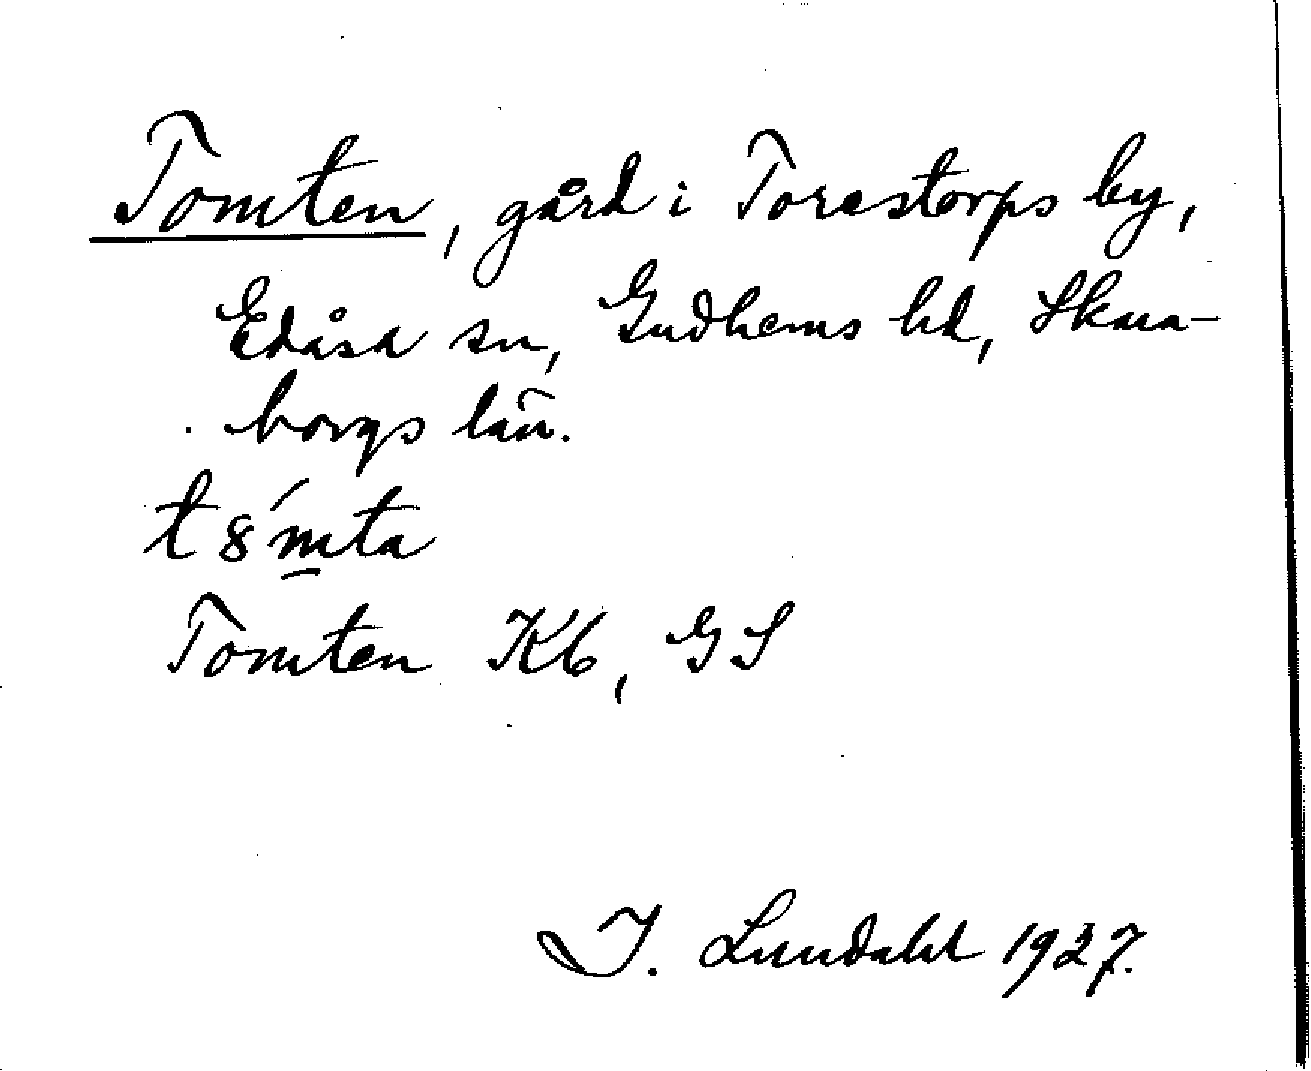 Tomten, gård i Torestorps by,
Edåsa sn, Gudhems hd, Skara-
borgs län.
t8´m̲ta
Tomten Kb, GS
I. Lundahl 1927.